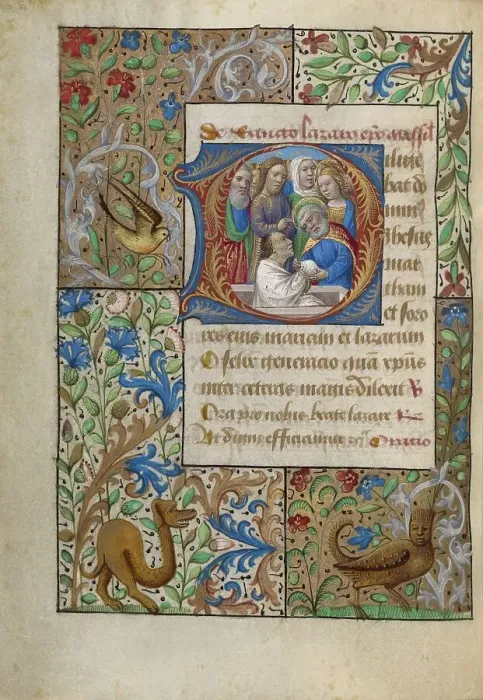 De Sancto lazaro epo massil
Dilige
bat do
min⁹
ihesus
mar
tham
et soro
rem eius mariam et lazarum
O felix generacio quā xp̄us
inter ceteras magis dilexit ℣
Ora pro nobis beate lazare ℟
Ut digni efficiamur Oratio